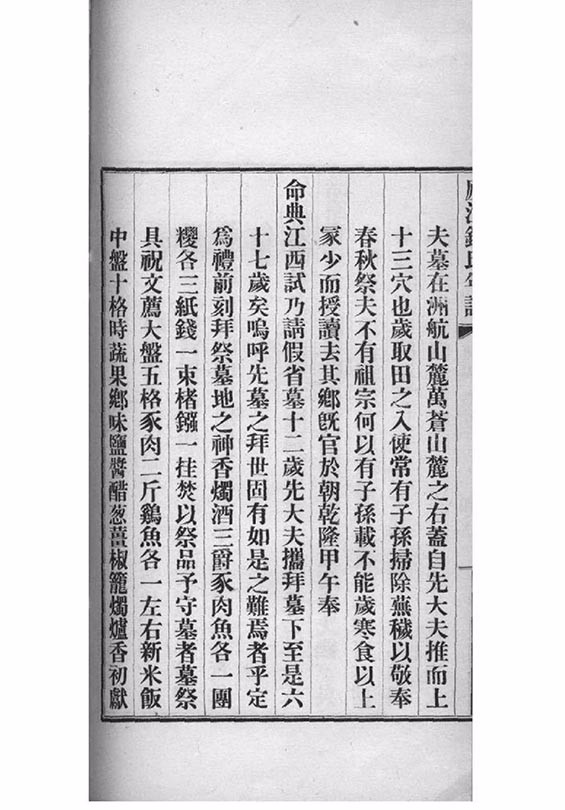 夫墓在洲航山麓萬蒼山麓之右蓋自先大夫推而上
十三穴也歲取田之入使常有子孫掃除蕪穢以敬奉
春秋祭夫不有祖宗何以有子孫載不能歲寒食以上
冢少而授讀去其鄉旣官於朝乾隆甲午奉
命典江西試乃請假省墓十二歲先大夫攜拜墓下至是六
十七歲矣嗚呼先墓之拜世固有如是之難焉者乎定
爲禮前刻拜祭墓地之神香燭酒三爵豕肉魚各一團
糭各三紙錢一束楮鏹一挂焚以祭品予守墓者墓祭
具祝文薦大盤五格豕肉二斤鷄魚各一左右新米飯
中盤十格時蔬果鄉味鹽醬醋葱薑椒籠燭爐香初獻